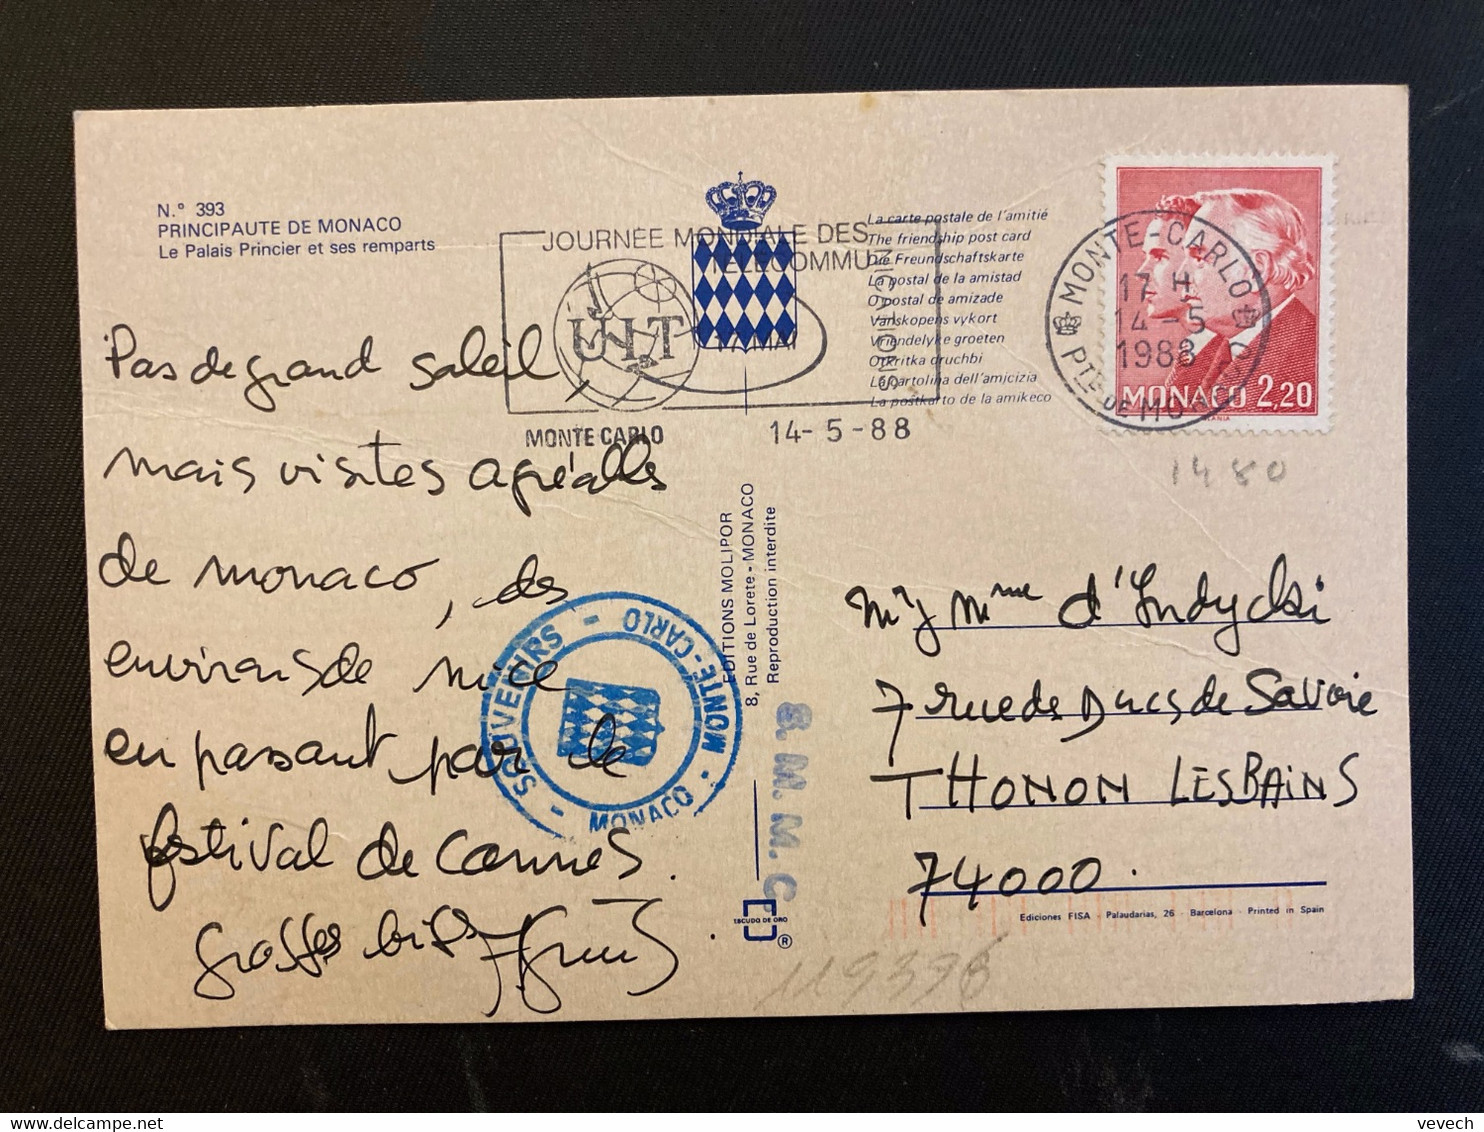 N.° 393
PRINCIPAUTE DE MONACO
Le Palais Princier et ses remparts
JOURNÉE MONDIALE DES
TÉLÉCOMMU
NICATIONS
UIT
17 MAI
MONTE CARLO
14-5-88
La carte postale de l'amitié
The friendship post card
Die Freundschaftskarte
La postal de la amistad
O postal de amizade
Vanskopens vykort
Vriendelyke groeten
Otkritka druchbi
La cartolina dell'amicizia
La postkarto de la amikeco
MONTE-CARLO
17 H
14-5
1988
PTÉ DE MONACO
MONACO 2,20
1480
Pas de grand soleil,
mais visites agréables
de monaco, des
environs de nice
en passant par le
festival de Cannes.
Grosses bises
SOUVENIRS - MONTE-CARLO - MONACO -
EDITIONS MOLIPOR
8, Rue de Lorete - MONACO
Reproduction interdite
S.M.M.C.
ESCUDO DE ORO
®
Mr & Mme d'Indycki
7 rue des Ducs de Savoie
THONON LES BAINS
74000.
Ediciones FISA - Palaudarias, 26 - Barcelona - Printed in Spain
vevech